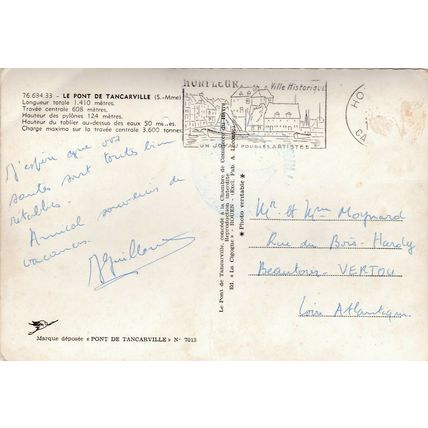 76.684.33 - LE PONT DE TANCARVILLE (S.-Mme)
Longueur totale 1.410 mètres.
Travée centrale 608 mètres.
Hauteur des pylônes 124 mètres.
Hauteur du tablier au-dessus des eaux 50 mètres.
Charge maxima sur la travée centrale 3.600 tonnes
J'espère que vos
santés sont toutes bien
rétablies.
Amical souvenirs de
vacances.
AGuillou
Marque déposée « PONT DE TANCARVILLE » N° 7013
HONFLEUR Ville Historique
UN JOYAU POUR LES ARTISTES
HO
CA
Le Pont de Tancarville, concédé à la Chambre de Commerce du Havre
Reproduction interdite
Ed. « La Cigogne » - ROUEN - (Excl. Pab. A.
★ Photo véritable ★
Mr et Mme Maynard
Rue du Bois-Hardy
Beautour-VERTOU
Loire Atlantique.